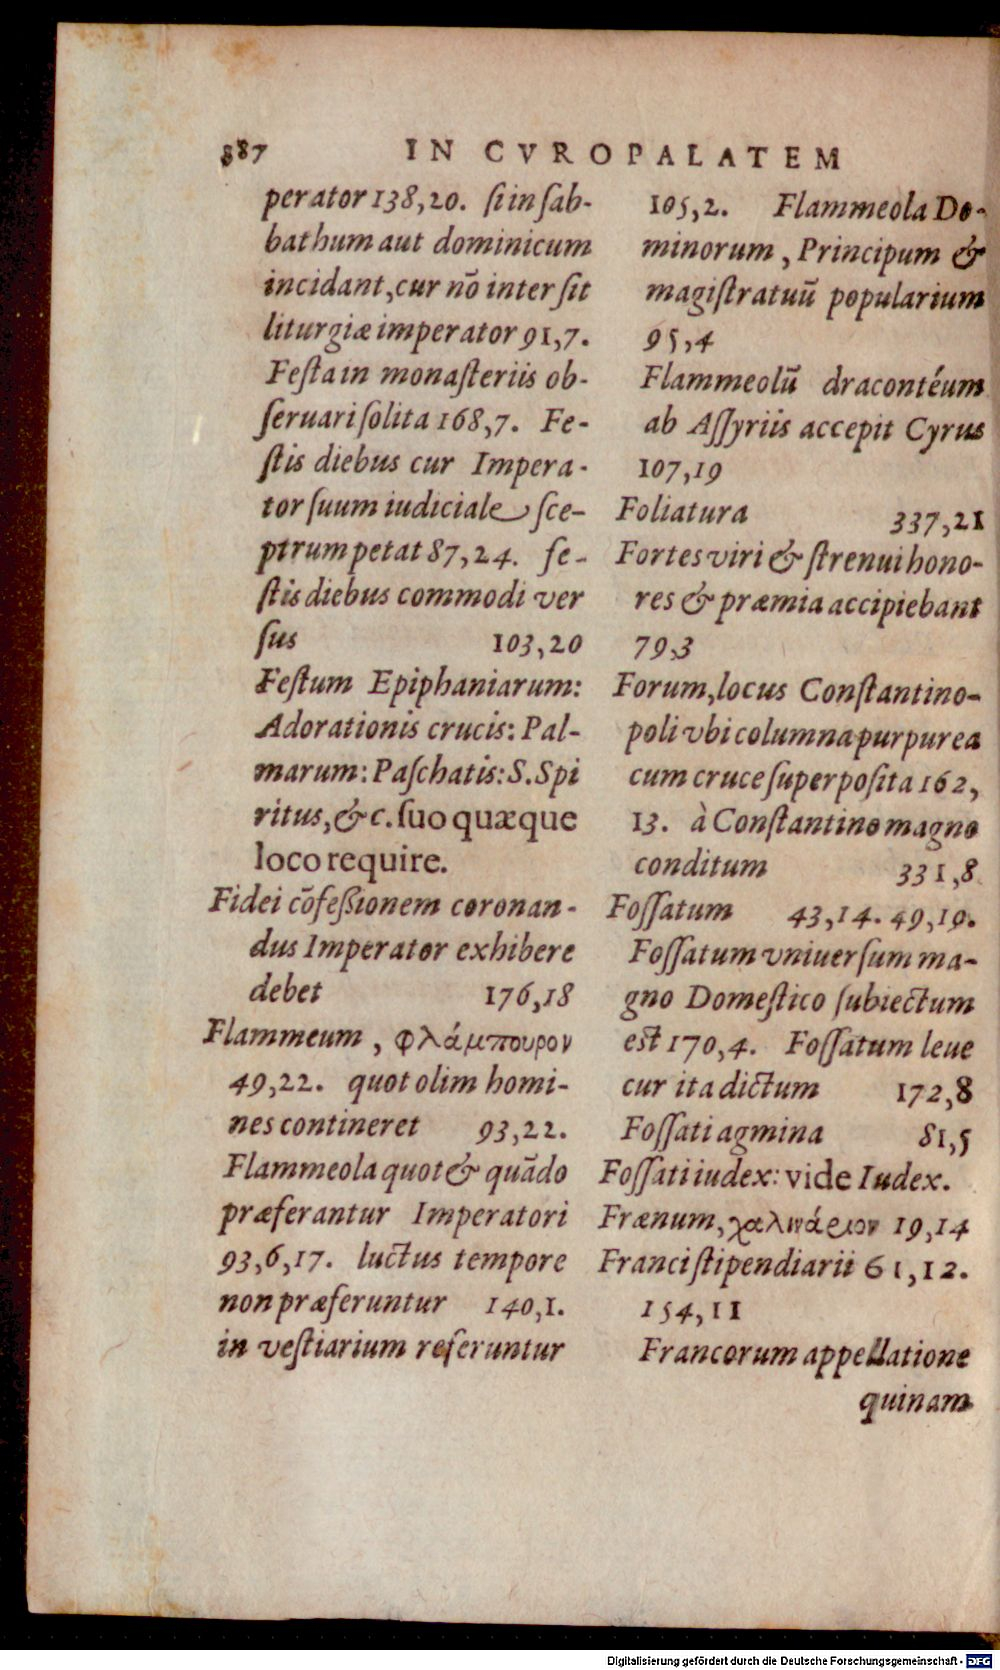 387 IN CVROPALATEM
perator 138,20. ſi in ſab-
bathum aut dominicum
incidant, cur nō interſit
liturgiæ imperator 91,7.
Feſta in monaſteriis ob-
ſeruari ſolita 168,7. Fe-
ſtis diebus cur Impera-
tor ſuum iudiciale ſce-
ptrum petat 87,24. fe-
ſtis diebus commodi ver
ſus 103,20
Feſtum Epiphaniarum:
Adorationis crucis: Pal-
marum: Paſchatis: S. Spi
ritus, &c. ſuo quæque
loco require.
Fidei cōfeßionem coronan-
dus Imperator exhibere
debet 176,18
Flammeum, φλάμπουρον
49,22. quot olim homi-
nes contineret 93,22.
Flammeola quot & quādo
præferantur Imperatori
93,6,17. luctus tempore
non præferuntur 140,1.
in veſtiarium referuntur
105,2. Flammeola Do-
minorum, Principum &
magiſtratuū popularium
95,4
Flammeolū dracontéum
ab Aſſyriis accepit Cyrus
107,19
Foliatura 337,21
Fortes viri & ſtrenui hono-
res & præmia accipiebant
79,3
Forum, locus Conſtantino-
poli vbi columna purpurea
cum cruce ſuperpoſita 162,
13. à Conſtantino magno
conditum 331,8
Foſſatum 43,14. 49,19.
Foſſatum vniuerſum ma-
gno Domeſtico ſubiectum
eſt 170,4. Foſſatum leue
cur ita dictum 172,8
Foſſati agmina 81,5
Foſſati iudex: vide Iudex.
Frænum, χαλινάριον 19,14
Franci ſtipendiarii 61,12.
154,11
Francorum appellatione
quinam
Digitalisierung gefördert durch die Deutsche Forschungsgemeinschaft - DFG